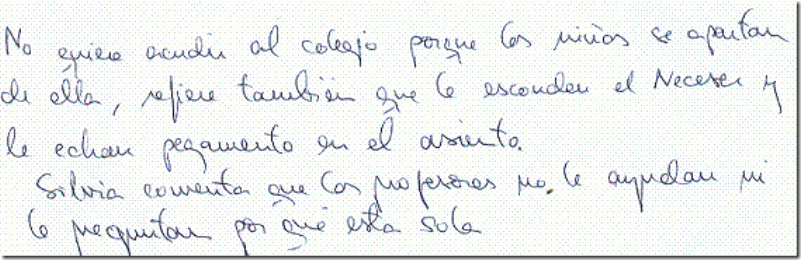 No quiere acudir al colegio porque los niños se apartan
de ella, refiere también que le esconden el Neceser y
le echan pegamento en el asiento.
Silvia comenta que los profesores no le ayudan ni
le preguntan por qué está sola